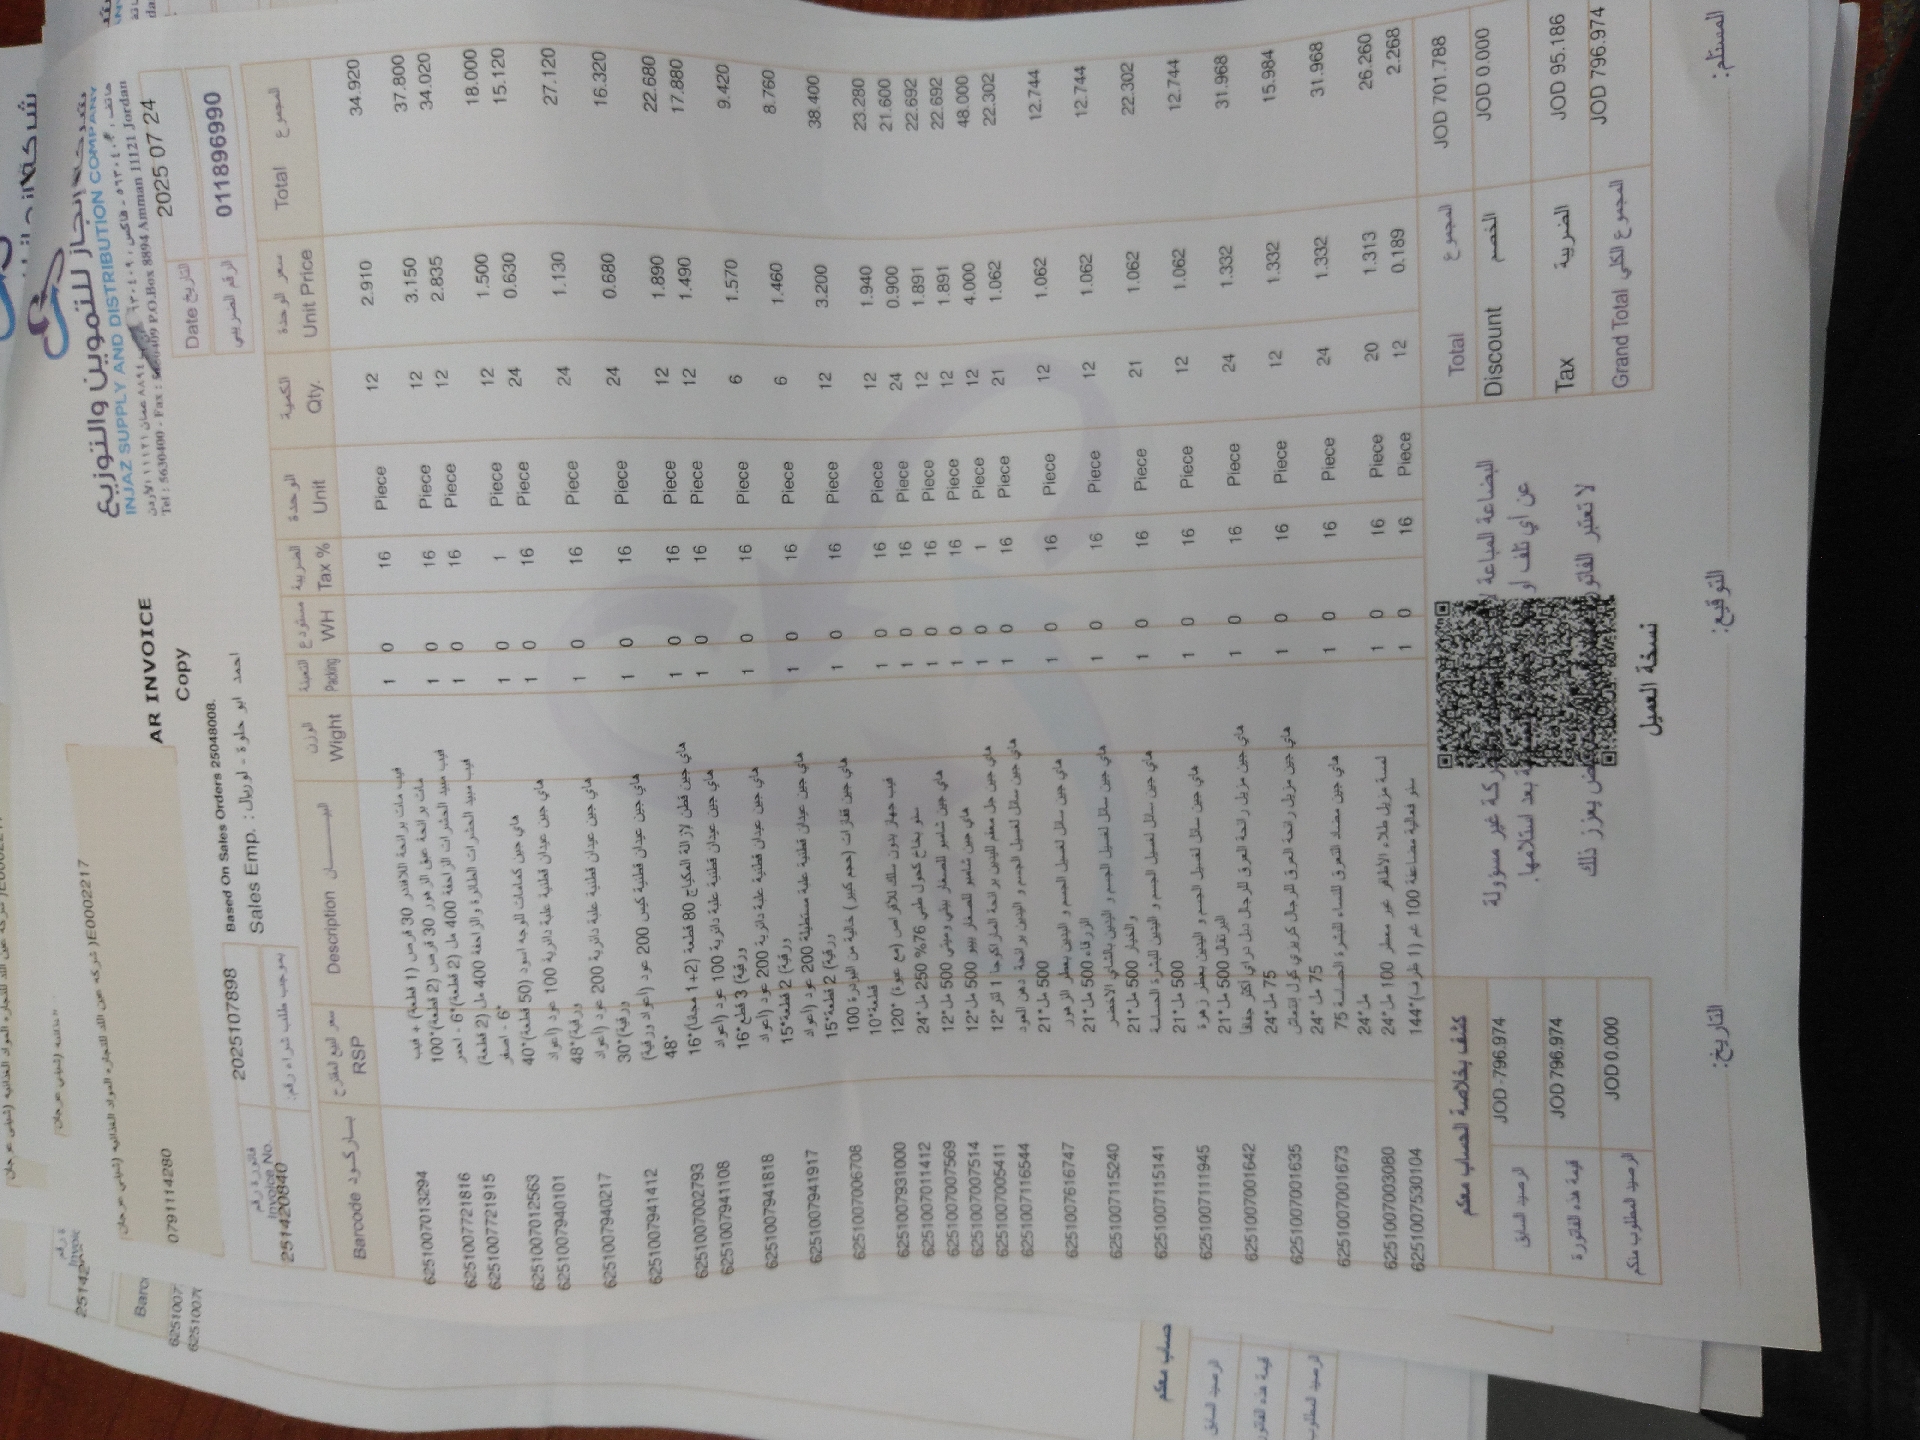 شركة
انجاز للتموين والتوزيع
INJAZ SUPPLY AND DISTRIBUTION COMPANY
Tel : 5630400 - Fax : 5630409 P.O.Box 8894 Amman 11121 Jordan
التاريخ Date 2025 07 24
الرقم الضريبي 011896990
AR INVOICE
Copy
E0002217
0791114280
فاتورة رقم Invoice No. 2025107898
Based On Sales Orders 25048008.
Sales Emp. : احمد ابو حلوة - لوريال
بموجب طلب شراء رقم:
251420840
باركود Barcode سعر البيع المقترح RSP البيــــــان Description الوزن Wight التعبئة Packing مستودع WH الضريبة Tax % الوحدة Unit الكمية Qty. سعر الوحدة Unit Price المجموع Total
6251007013294 فيب مات برائحة اللافندر 30 قرص (1 قطعة) + فيب 1 0 16 Piece 12 2.910 34.920
مات برائحة عبق الزهور 30 قرص (2 قطعة)*100
6251007721816 فيب مبيد الحشرات الزاحفة 400 مل (2 قطعة)*6 - احمر 1 0 16 Piece 12 3.150 37.800
6251007721915 فيب مبيد الحشرات الطائرة والزاحفة 400 مل (2 قطعة) 1 0 16 Piece 12 2.835 34.020
*6 - اصفر
6251007012563 هاي جين كمامات للوجه اسود (50 قطعة)*40 1 0 1 Piece 12 1.500 18.000
6251007940101 هاي جين عيدان قطنية علبة دائرية 100 عود (اعواد 1 0 16 Piece 24 0.630 15.120
ورقية)*48
6251007940217 هاي جين عيدان قطنية علبة دائرية 200 عود (اعواد 1 0 16 Piece 24 1.130 27.120
ورقية)*30
6251007941412 هاي جين عيدان قطنية كيس 200 عود (اعواد ورقية) 1 0 16 Piece 24 0.680 16.320
*48
6251007002793 هاي جين قطن لازالة المكياج 80 قطعة (2+ 1 مجانا)*16 1 0 16 Piece 12 1.890 22.680
6251007941108 هاي جين عيدان قطنية علبة دائرية 100 عود (اعواد 1 0 16 Piece 12 1.490 17.880
ورقية) 3 قطع*16
6251007941818 هاي جين عيدان قطنية علبة دائرية 200 عود (اعواد 1 0 16 Piece 6 1.570 9.420
ورقية) 2 قطعة*15
6251007941917 هاي جين عيدان قطنية علبة مستطيلة 200 عود (اعواد 1 0 16 Piece 6 1.460 8.760
ورقية) 2 قطعة*15
6251007006708 هاي جين قفازات (حجم كبير) خالية من البودرة 100 1 0 16 Piece 12 3.200 38.400
قطعة*10
6251007931000 فيب جهاز بدون سلك للاقراص (مع عبوة) *120 1 0 16 Piece 12 1.940 23.280
6251007011412 ستو بخاخ كحول طبي 76% 250 مل*24 1 0 16 Piece 24 0.900 21.600
6251007007569 هاي جين شامبو للصغار بيتي وميتي 500 مل*12 1 0 16 Piece 12 1.891 22.692
6251007007514 هاي جين شامبو للصغار بيبو 500 مل*12 1 0 16 Piece 12 1.891 22.692
6251007005411 هاي جين جل معقم لليدين برائحة الماراكوجا 1 لتر*12 1 0 1 Piece 12 4.000 48.000
6251007116544 هاي جين سائل لغسيل الجسم و اليدين برائحة دهن العود 1 0 16 Piece 21 1.062 22.302
500 مل*21
6251007616747 هاي جين سائل لغسيل الجسم و اليدين بعطر الزهور 1 0 16 Piece 12 1.062 12.744
الزرقاء 500 مل*21
6251007115240 هاي جين سائل لغسيل الجسم و اليدين بالشاي الاخضر 1 0 16 Piece 12 1.062 12.744
والخيار 500 مل*21
6251007115141 هاي جين سائل لغسيل الجسم و اليدين للبشرة الحساسة 1 0 16 Piece 21 1.062 22.302
500 مل*21
6251007111945 هاي جين سائل لغسيل الجسم و اليدين بعطر زهرة 1 0 16 Piece 12 1.062 12.744
البرتقال 500 مل*21
6251007001642 هاي جين مزيل رائحة العرق للرجال دبل دراي اكثر جفافا 1 0 16 Piece 24 1.332 31.968
75 مل*24
6251007001635 هاي جين مزيل رائحة العرق للرجال كريزي كول إنتعاش 1 0 16 Piece 12 1.332 15.984
75 مل*24
6251007001673 هاي جين مضاد التعرق للنساء للبشرة الحساسة 75 1 0 16 Piece 24 1.332 31.968
مل*24
6251007003080 لمسة مزيل طلاء الاظافر غير معطر 100 مل*24 1 0 16 Piece 20 1.313 26.260
6251007530104 ستو فعالية مضاعفة 100 غم (1 ظرف)*144 1 0 16 Piece 12 0.189 2.268
كشف بخلاصة الحساب معكم
الرصيد السابق JOD -796.974
قيمة هذه الفاتورة JOD 796.974
الرصيد المطلوب منكم JOD 0.000
Total المجموع JOD 701.788
Discount الخصم JOD 0.000
Tax الضريبة JOD 95.186
Grand Total المجموع الكلي JOD 796.974
البضاعة المباعة
شركة غير مسؤولة
عن أي تلف او
بعد استلامها.
لا تعتبر
يعزز ذلك
نسخة العميل
المستلم:
التوقيع:
التاريخ: